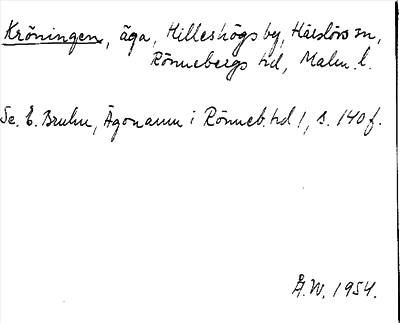 Kröningen, äga, Hilleshögs by, Härslövs sn,
Rönnebergs hd, Malm. l.
Se E. Bruhn, Ägonamn i Rönneb. hd 1, s. 140 f.
Å.W. 1954.